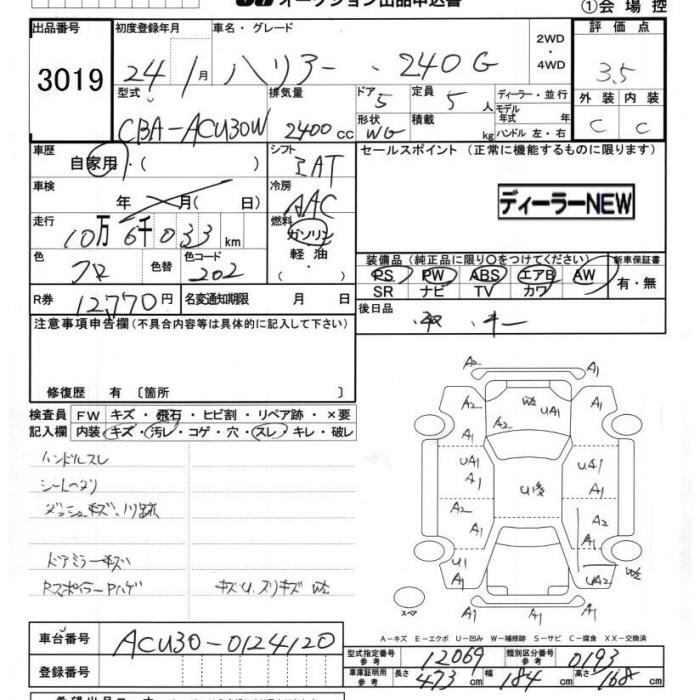 オークション出品申込書
①会場控
出品番号 初度登録年月 車名・グレード 2WD・4WD 評価点
3019 24年 1月 ハリアー 240G 3.5
型式 排気量 ドア 定員 ディーラー・並行 外装 内装
CBA-ACU30W 2400cc 5 5人 モデル年式 年 C C
形状 積載
WG kg ハンドル 左・右
車歴 シフト セールスポイント (正常に機能するものに限ります)
自家用・( ) IAT
車検 冷房
年 月( 日) AAC ディーラーNEW
走行 燃料
10万6千033km ガソリン・軽油・
色 色替 色コード 装備品(純正品に限り○をつけてください) 新車保証書
クロ 202 PS PW ABS エアB AW 有・無
SR ナビ TV カワ
R券 12,770円 名変通知期限 月 日 後日品
注意事項申告欄(不具合内容等は具体的に記入して下さい)
修復歴 有 〔箇所 〕
検査員 FW キズ・飛石・ヒビ割・リペア跡・×要
記入欄 内装 キズ・汚レ・コゲ・穴・スレ・キレ・破レ
ハンドルスレ
ドアミラーキズ
A2 A1
A2 A1 UA1 A1
A2
UA1 A1 UA1 A1
A2 A1 A1 A1
U1 A1 A1 UA2
スペア
A-キズ E-エクボ U-凹み W-補修跡 S-サビ C-腐食 XX-交換済
車台番号 ACU30-0124120
型式指定番号 参考 12069 類別区分番号 参考 0193
登録番号 車庫証明用 参考 長さ 473cm 幅 184cm 高さ 168cm